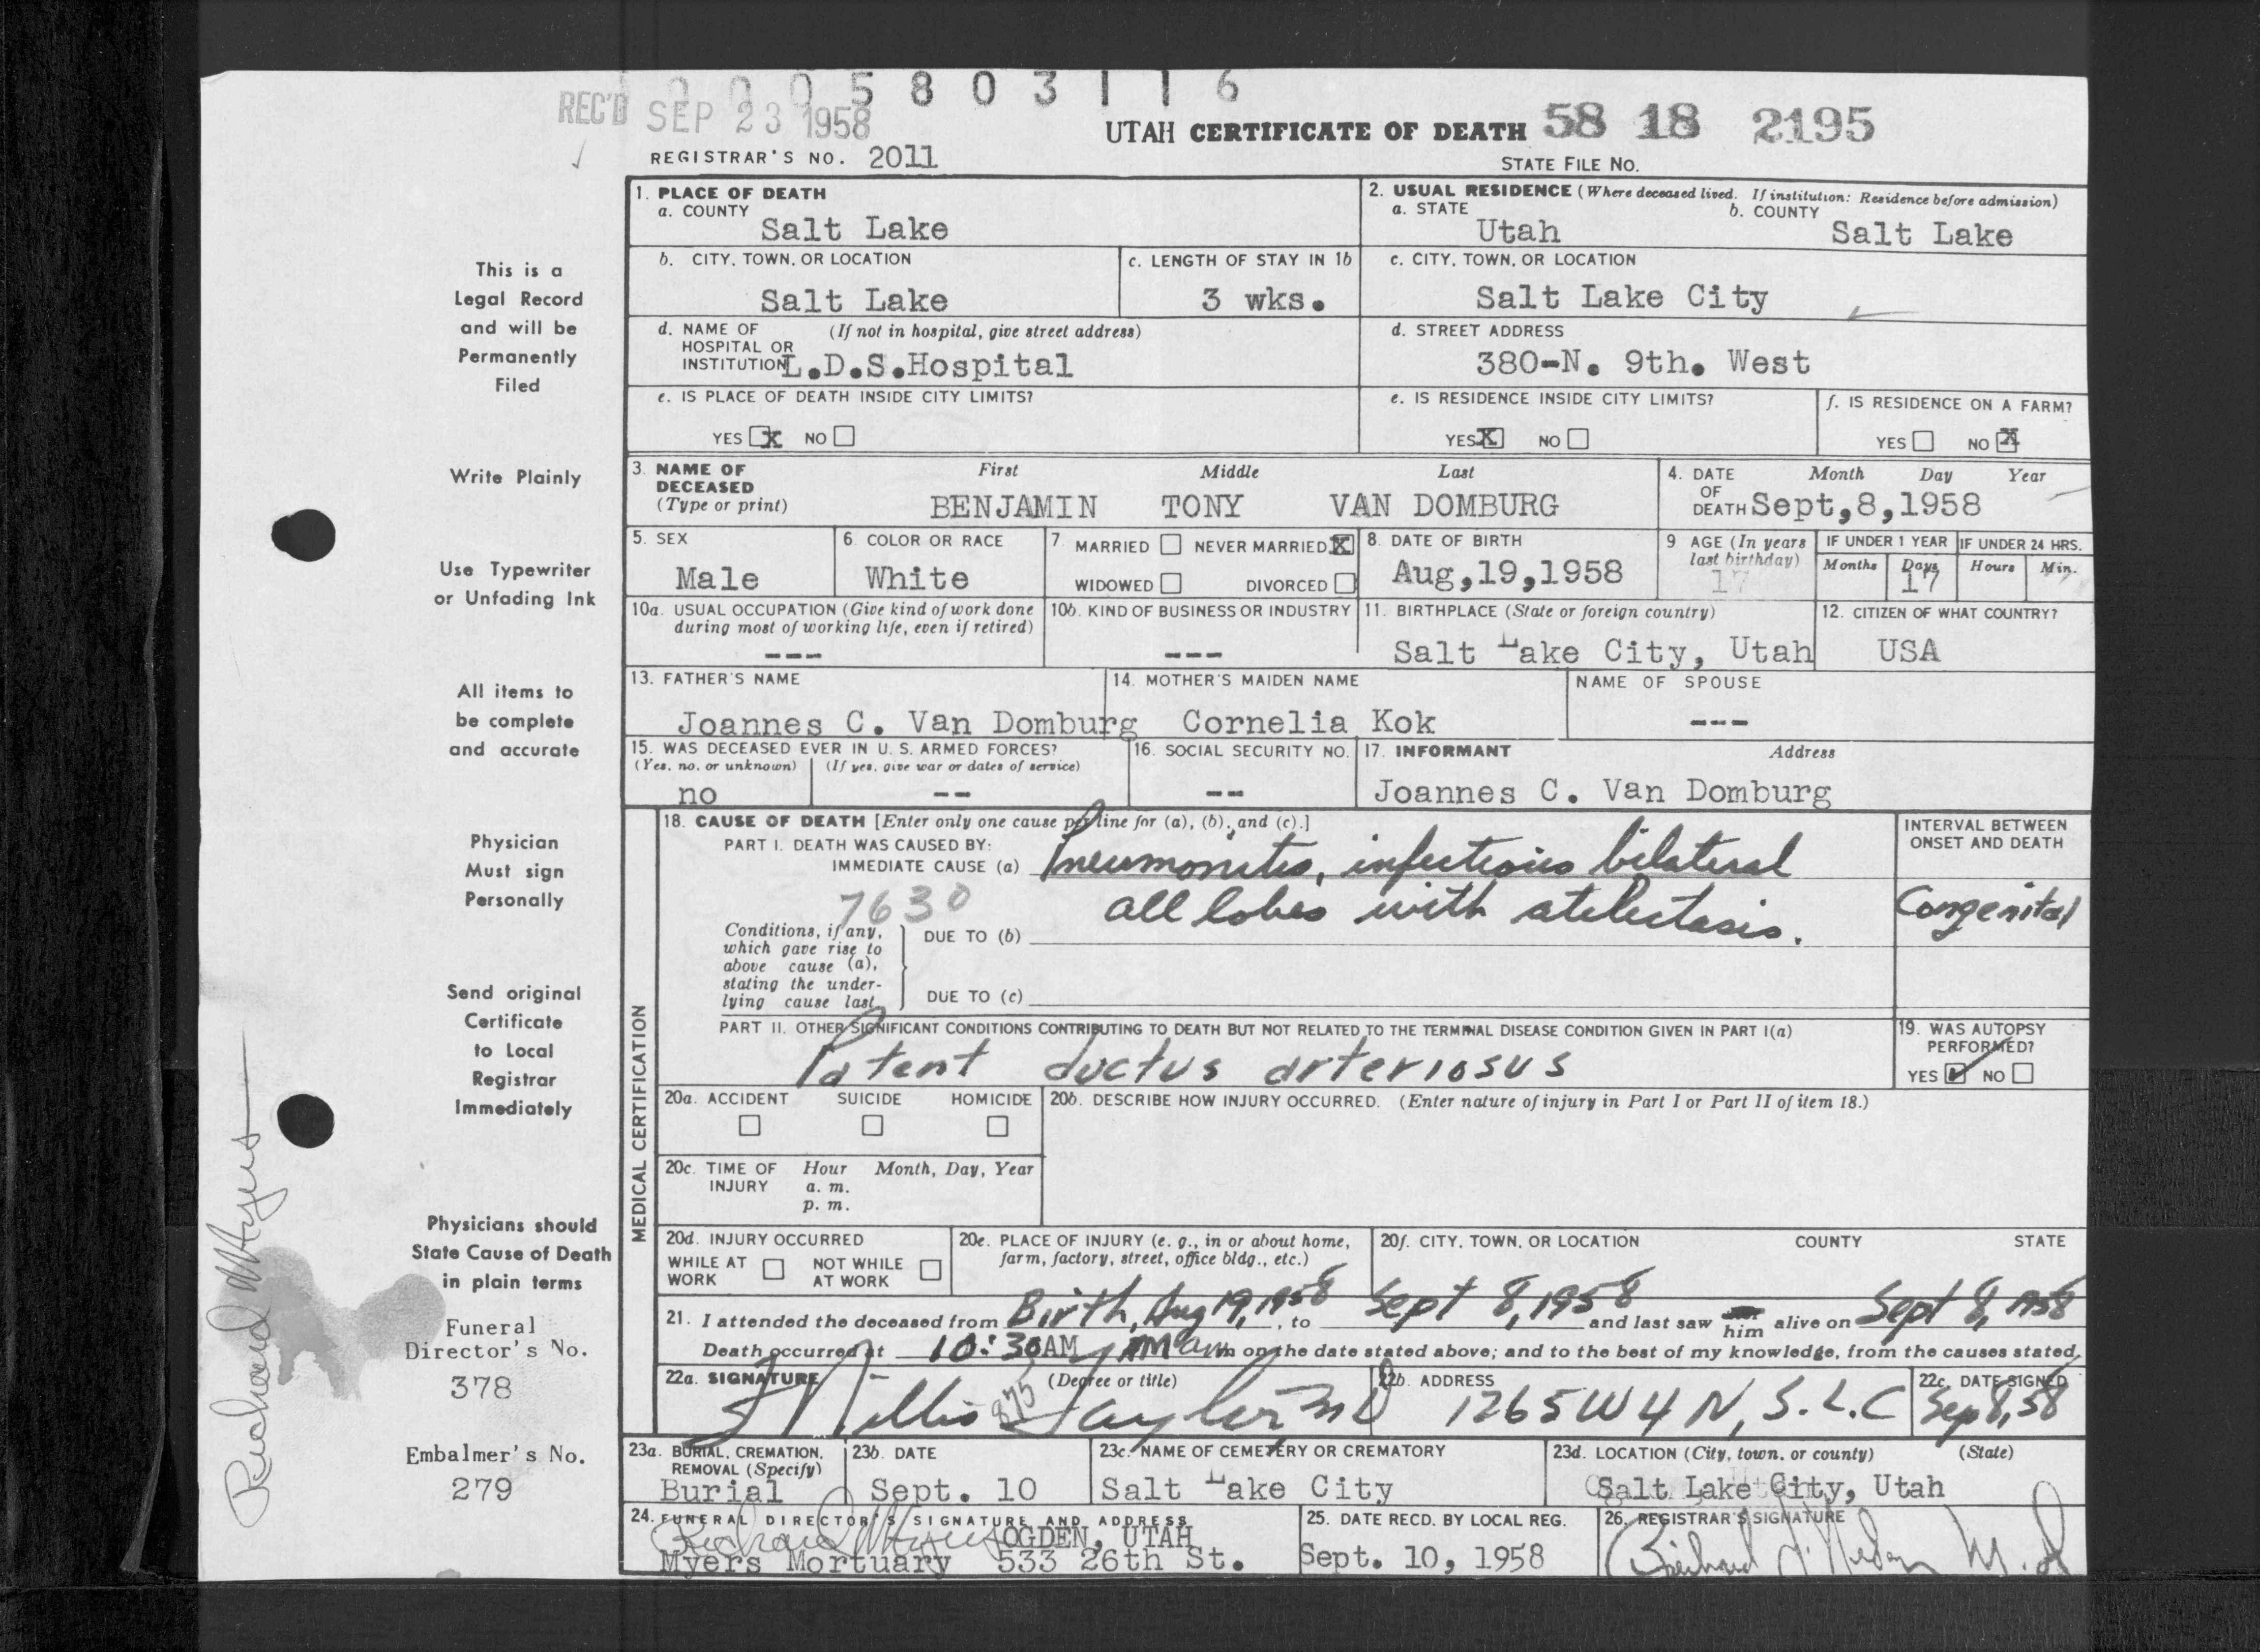 0 0 0 5 8 0 3 1 1 6
REC'D SEP 23 1958
UTAH CERTIFICATE OF DEATH 58 18 2195
REGISTRAR'S NO. 2011
STATE FILE NO.
This is a
Legal Record
and will be
Permanently
Filed
Write Plainly
Use Typewriter
or Unfading Ink
All items to
be complete
and accurate
Physician
Must sign
Personally
Send original
Certificate
to Local
Registrar
Immediately
Physicians should
State Cause of Death
in plain terms
Funeral
Director's No.
378
Embalmer's No.
279
Richard Myers
1. PLACE OF DEATH
a. COUNTY
Salt Lake
2. USUAL RESIDENCE (Where deceased lived. If institution: Residence before admission)
a. STATE
Utah
b. COUNTY
Salt Lake
b. CITY, TOWN, OR LOCATION
Salt Lake
c. LENGTH OF STAY IN 1b
3 wks.
c. CITY, TOWN, OR LOCATION
Salt Lake City
d. NAME OF (If not in hospital, give street address)
HOSPITAL OR
INSTITUTION L.D.S.Hospital
d. STREET ADDRESS
380-N. 9th. West
e. IS PLACE OF DEATH INSIDE CITY LIMITS?
YES X NO
e. IS RESIDENCE INSIDE CITY LIMITS?
YES X NO
f. IS RESIDENCE ON A FARM?
YES NO X
3. NAME OF
DECEASED
(Type or print)
First Middle Last
BENJAMIN TONY VAN DOMBURG
4. DATE Month Day Year
OF
DEATH Sept,8,1958
5. SEX
Male
6. COLOR OR RACE
White
7. MARRIED NEVER MARRIED X
WIDOWED DIVORCED
8. DATE OF BIRTH
Aug,19,1958
9 AGE (In years
last birthday)
17
IF UNDER 1 YEAR IF UNDER 24 HRS.
Months Days Hours Min.
17
10a. USUAL OCCUPATION (Give kind of work done
during most of working life, even if retired)
---
10b. KIND OF BUSINESS OR INDUSTRY
---
11. BIRTHPLACE (State or foreign country)
Salt Lake City, Utah
12. CITIZEN OF WHAT COUNTRY?
USA
13. FATHER'S NAME
Joannes C. Van Domburg
14. MOTHER'S MAIDEN NAME
Cornelia Kok
NAME OF SPOUSE
---
15. WAS DECEASED EVER IN U. S. ARMED FORCES?
(Yes, no, or unknown) (If yes, give war or dates of service)
no --
16. SOCIAL SECURITY NO.
--
17. INFORMANT Address
Joannes C. Van Domburg
MEDICAL CERTIFICATION
18. CAUSE OF DEATH [Enter only one cause per line for (a), (b), and (c).]
PART I. DEATH WAS CAUSED BY:
IMMEDIATE CAUSE (a) Pneumonitis, infectious bilateral
7630 all lobes with atelectasis.
Conditions, if any,
which gave rise to
above cause (a),
stating the under-
lying cause last.
DUE TO (b)
DUE TO (c)
INTERVAL BETWEEN
ONSET AND DEATH
Congenital
PART II. OTHER SIGNIFICANT CONDITIONS CONTRIBUTING TO DEATH BUT NOT RELATED TO THE TERMINAL DISEASE CONDITION GIVEN IN PART I(a)
Patent ductus arteriosus
19. WAS AUTOPSY
PERFORMED?
YES ✓ NO
20a. ACCIDENT SUICIDE HOMICIDE
20b. DESCRIBE HOW INJURY OCCURRED. (Enter nature of injury in Part I or Part II of item 18.)
20c. TIME OF Hour Month, Day, Year
INJURY a. m.
p. m.
20d. INJURY OCCURRED
WHILE AT NOT WHILE
WORK AT WORK
20e. PLACE OF INJURY (e. g., in or about home,
farm, factory, street, office bldg., etc.)
20f. CITY, TOWN, OR LOCATION COUNTY STATE
21. I attended the deceased from Birth, Aug 19, 1958, to Sept 8, 1958 and last saw him alive on Sept 8, 1958
Death occurred at 10:30 AM m on the date stated above; and to the best of my knowledge, from the causes stated.
22a. SIGNATURE (Degree or title)
Willis Taylor MD
875
22b. ADDRESS
1265 W 4 N, S.L.C
22c. DATE SIGNED
Sep 8, 58
23a. BURIAL, CREMATION,
REMOVAL (Specify)
Burial
23b. DATE
Sept. 10
23c. NAME OF CEMETERY OR CREMATORY
Salt Lake City
23d. LOCATION (City, town, or county) (State)
Salt Lake City, Utah
24. FUNERAL DIRECTOR'S SIGNATURE AND ADDRESS
Richard Myers OGDEN, UTAH
Myers Mortuary 533 26th St.
25. DATE RECD. BY LOCAL REG.
Sept. 10, 1958
26. REGISTRAR'S SIGNATURE